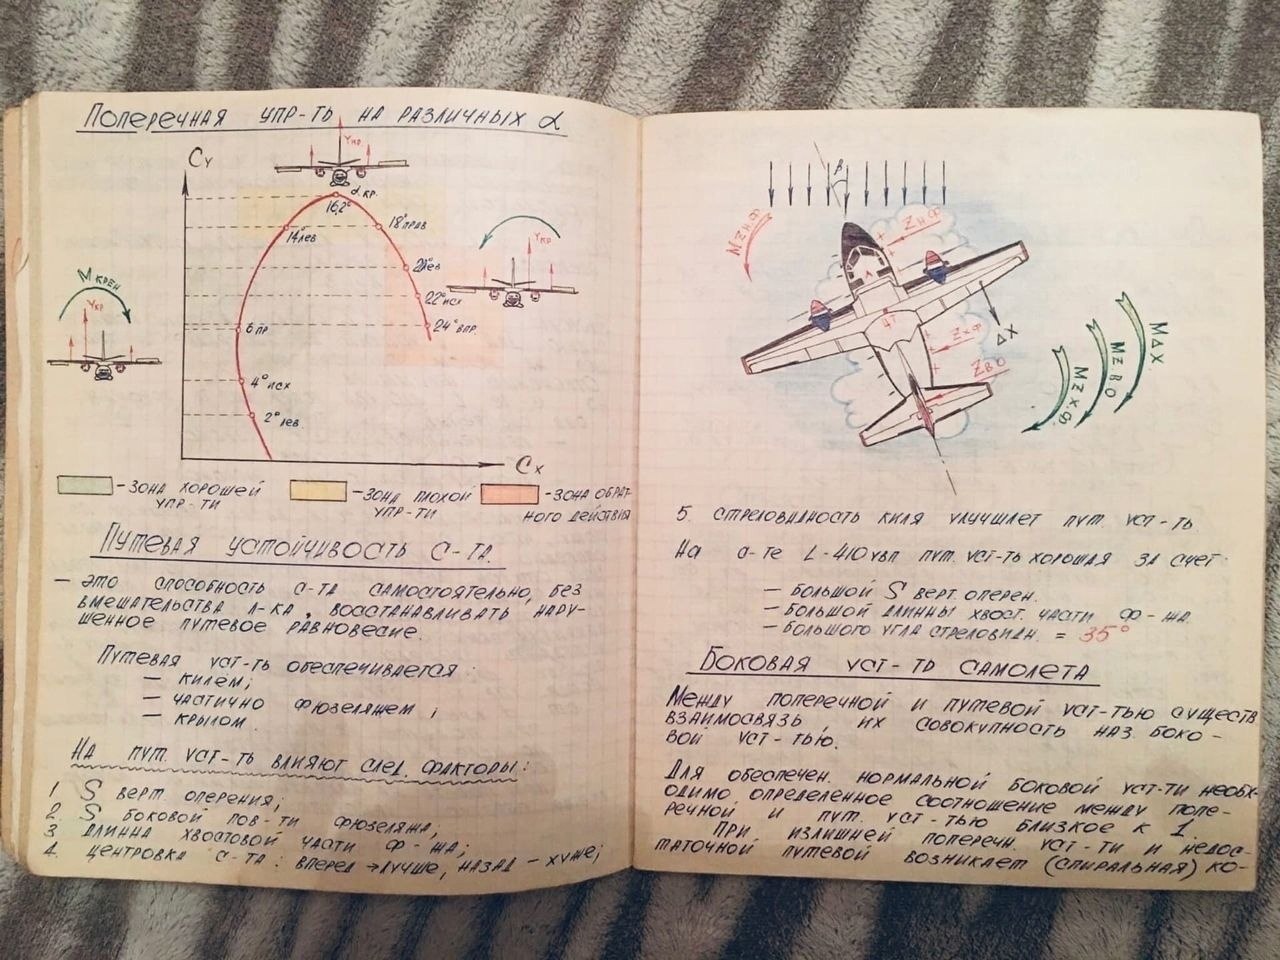 Поперечная упр-ть на различных α
Cу
Yкр
α кр.
16,2°
14°лев
18°прав
20°лев
22°исх
24°впр.
6 пр
4° исх
2° лев
Cх
М крен
Yкр.
Yкр.
- зона хорошей
упр-ти
- зона плохой
упр-ти
- зона обрат-
ного действия
Путевая устойчивость с-та.
— это способность с-та самостоятельно, без
вмешательства л-ка, восстанавливать нару-
шенное путевое равновесие.
Путевая уст-ть обеспечивается:
— килем;
— частично фюзеляжем;
— крылом.
На пут. уст-ть влияют след. факторы:
1 S верт. оперения;
2. S боковой пов-ти фюзеляжа;
3 длинна хвостовой части ф-жа;
4. центровка с-та: вперед → лучше, назад – хуже;
β
М Z н.ф.
Z н.ф
ц.т
ΔX
Z х.ф
Z в о
М Δ X.
М Z в о
М Z х.ф.
5. стреловидность киля улучшлет пут. уст-ть
На с-те L-410 увп пут. уст-ть хорошая за счет:
— большой S верт. оперен.
— большой длинны хвост. части ф-жа.
— большого угла стреловидн. = 35°
Боковая уст-ть самолета
Между поперечной и путевой уст-тью существ
взаимосвязь, их совокупность наз. боко-
вой уст-тью.
Для обеспечен. нормальной боковой уст-ти необх-
одимо определенное соотношение между попе-
речной и пут. уст-тью близкое к 1.
При излишней поперечн. уст-ти и недос-
таточной путевой возникает (спиральная) ко-